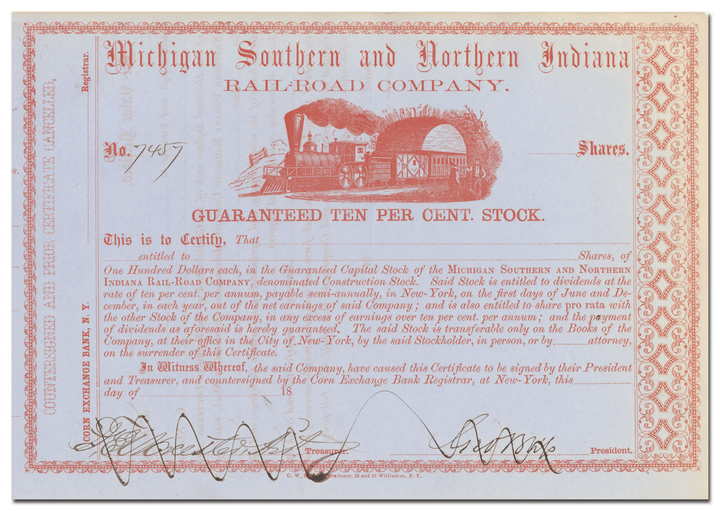 Michigan Southern and Northern Indiana
RAIL-ROAD COMPANY.
No. 7457 Shares.
GUARANTEED TEN PER CENT. STOCK.
This is to Certify, That
entitled to Shares, of
One Hundred Dollars each, in the Guaranteed Capital Stock of the MICHIGAN SOUTHERN AND NORTHERN
INDIANA RAIL-ROAD COMPANY, denominated Construction Stock. Said Stock is entitled to dividends at the
rate of ten per cent. per annum, payable semi-annually, in New-York, on the first days of June and De-
cember, in each year, out of the net earnings of said Company; and is also entitled to share pro rata with
the other Stock of the Company, in any excess of earnings over ten per cent. per annum; and the payment
of dividends as aforesaid is hereby guaranteed. The said Stock is transferable only on the Books of the
Company, at their office in the City of New-York, by the said Stockholder, in person, or by attorney,
on the surrender of this Certificate.
In Witness Whereof, the said Company, have caused this Certificate to be signed by their President
and Treasurer, and countersigned by the Corn Exchange Bank Registrar, at New-York, this
day of 18
Treasurer. President.
COUNTERSIGNED AND PRIOR CERTIFICATE CANCELLED,
CORN EXCHANGE BANK, N. Y. Registrar.